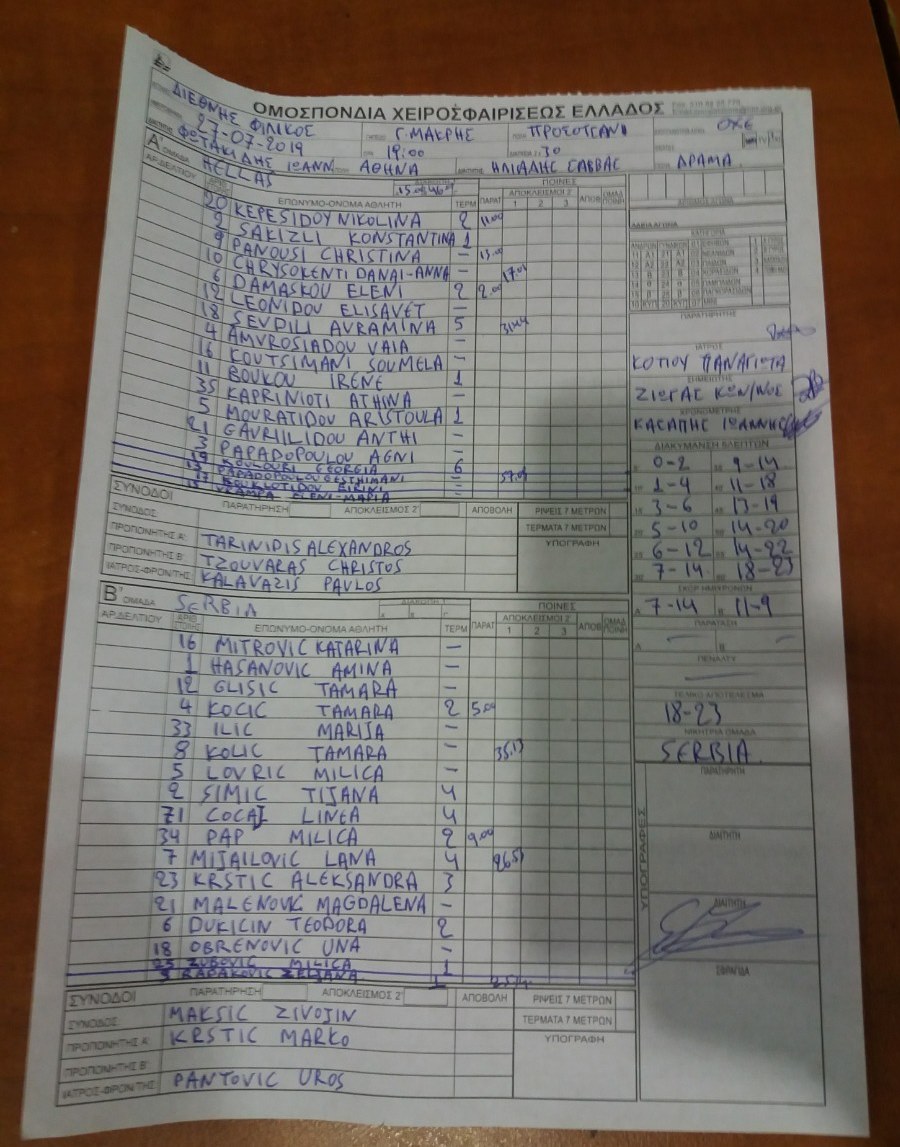 ΟΜΟΣΠΟΝΔΙΑ ΧΕΙΡΟΣΦΑΙΡΙΣΕΩΣ ΕΛΛΑΔΟΣ
ΔΙΕΘΝΗΣ ΦΙΛΙΚΟΣ Γ. ΜΑΚΡΗΣ ΠΡΟΣΟΤΣΑΝΙ ΟΧΕ
27-07-2019 19:00 30
ΦΩΤΑΚΙΔΗΣ ΙΩΑΝΝ. ΑΘΗΝΑ ΗΛΙΑΔΗΣ ΣΑΒΒΑΣ ΔΡΑΜΑ
Α ΟΜΑΔΑ HELLAS
ΠΟΙΝΕΣ
ΑΡ.ΔΕΛΤΙΟΥ ΕΠΩΝΥΜΟ-ΟΝΟΜΑ ΑΘΛΗΤΗ ΤΕΡΜ ΠΑΡΑΤ ΑΠΟΚΛΕΙΣΜΟΙ 2' 1 2 3 ΑΠΟΒ ΟΜΑΔ ΠΟΙΝΗ
20 KEPESIDOY NIKOLINA 2 11.00
2 SAKIZLI KONSTANTINA 1
9 PANOUSI CHRISTINA – 13.00
10 CHRYSOKENTI DANAI-ANNA –
6 DAMASKOU ELENI 2 2.00
12 LEONIDOU ELISAVET –
18 SEVDILI AVRAMINA 5
4 AMVROSIADOU VAIA –
16 KOUTSIMANI SOUMELA –
11 BOUKOU IRENE 1
35 KAPRINIOTI ATHINA –
5 MOURATIDOU ARISTOULA 1
21 GAVRIILIDOU ANTHI –
3 PAPADOPOULOU AGNI –
19 KOULOURI GEORGIA 6
PAPADOPOULOU GESTHIMANI –
BOUKLOTIDOU EIRINI –
ELENI-MARIA
ΣΥΝΟΔΟΙ ΠΑΡΑΤΗΡΗΣΗ ΑΠΟΚΛΕΙΣΜΟΣ 2' ΑΠΟΒΟΛΗ ΡΙΨΕΙΣ 7 ΜΕΤΡΩΝ
ΣΥΝΟΔΟΣ: ΤΕΡΜΑΤΑ 7 ΜΕΤΡΩΝ
ΠΡΟΠΟΝΗΤΗΣ Α': TARINIDIS ALEXANDROS ΥΠΟΓΡΑΦΗ
ΠΡΟΠΟΝΗΤΗΣ Β': TZOUVARAS CHRISTOS
ΙΑΤΡΟΣ-ΦΡΟΝ/ΤΗΣ: KALAVAZIS PAVLOS
Β' ΟΜΑΔΑ SERBIA
ΠΟΙΝΕΣ
ΑΡ.ΔΕΛΤΙΟΥ ΕΠΩΝΥΜΟ-ΟΝΟΜΑ ΑΘΛΗΤΗ ΤΕΡΜ ΠΑΡΑΤ ΑΠΟΚΛΕΙΣΜΟΙ 2' 1 2 3 ΑΠΟΒ ΟΜΑΔ ΠΟΙΝΗ
16 MITROVIC KATARINA –
1 HASANOVIC AMINA –
12 GLISIC TAMARA –
4 KOCIC TAMARA 2 5.00
33 ILIC MARIJA –
8 KOLIC TAMARA – 35.13
5 LOVRIC MILICA –
2 SIMIC TIJANA 4
71 COCAI LINEA 4
34 PAP MILICA 2 9.00
7 MIJAILOVIC LANA 4 26.51
23 KRSTIC ALEKSANDRA 3
21 MALENOVIC MAGDALENA –
6 DUKICIN TEODORA 2
18 OBRENOVIC UNA –
25 ZUBOVIC MILICA 1
RADAKOVIC ZELJANA 1
ΣΥΝΟΔΟΙ ΠΑΡΑΤΗΡΗΣΗ ΑΠΟΚΛΕΙΣΜΟΣ 2' ΑΠΟΒΟΛΗ ΡΙΨΕΙΣ 7 ΜΕΤΡΩΝ
ΣΥΝΟΔΟΣ: MAKSIC ZIVOJIN ΤΕΡΜΑΤΑ 7 ΜΕΤΡΩΝ
ΠΡΟΠΟΝΗΤΗΣ Α': KRSTIC MARKO ΥΠΟΓΡΑΦΗ
ΠΡΟΠΟΝΗΤΗΣ Β':
ΙΑΤΡΟΣ-ΦΡΟΝ/ΤΗΣ: PANTOVIC UROS
ΚΑΤΗΓΟΡΙΑ
ΠΑΡΑΤΗΡΗΤΗΣ
ΙΑΤΡΟΣ
ΚΟΤΙΟΥ ΠΑΝΑΓΙΩΤΑ
ΣΗΜΕΙΩΤΗΣ
ΖΙΩΓΑΣ ΚΩΝ/ΝΟΣ
ΧΡΟΝΟΜΕΤΡΗΣ
ΚΑΣΑΠΗΣ ΙΩΑΝΝΗΣ
ΔΙΑΚΥΜΑΝΣΗ 5ΛΕΠΤΩΝ
0-2 9-14
1-4 11-18
3-6 13-19
5-10 14-20
6-12 14-22
7-14 18-23
ΣΚΟΡ ΗΜΙΧΡΟΝΩΝ
Α 7-14 Β 11-9
ΠΑΡΑΤΑΣΗ
Α – Β –
ΠΕΝΑΛΤΥ
ΤΕΛΙΚΟ ΑΠΟΤΕΛΕΣΜΑ
18-23
ΝΙΚΗΤΡΙΑ ΟΜΑΔΑ
SERBIA
ΥΠΟΓΡΑΦΕΣ
ΠΑΡΑΤΗΡΗΤΗ
ΔΙΑΙΤΗΤΗ
ΔΙΑΙΤΗΤΗ
ΣΦΡΑΓΙΔΑ